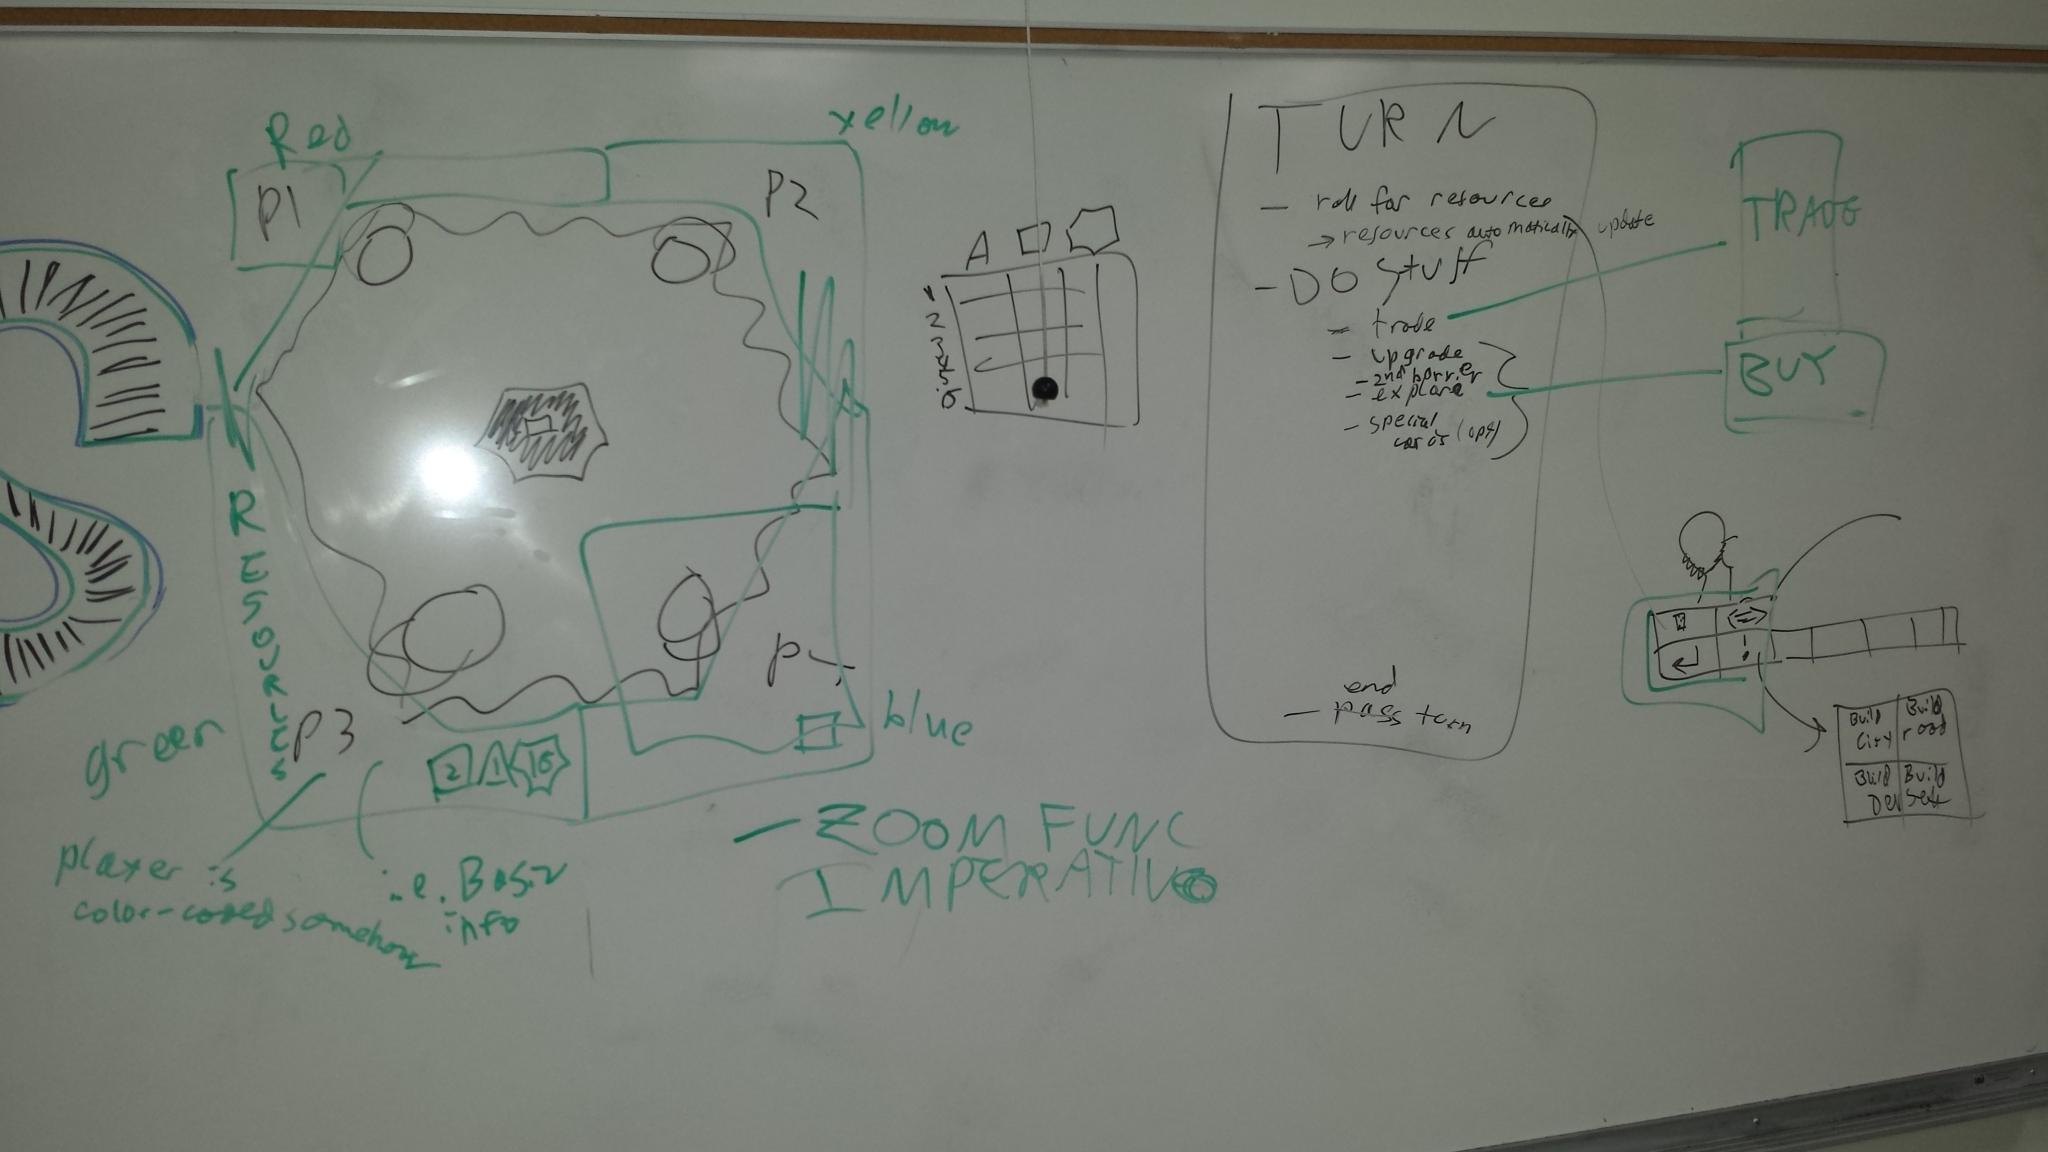 Red
yellow
P1
P2
RESOURCES
P3
green
blue
2 1 15
player is
color-coded somehow
i.e. Basic
info
- ZOOM FUNC
IMPERATIVE
A
1
2
3
4
5
6
TURN
- roll for resources
→ resources automatically update
- DO Stuff
- trade
- upgrade
- 2nd barrier
- explore
- special
cards (opt)
end
- pass turn
TRADE
BUY
Build
City
Build
road
Build
Dev
Build
Sett